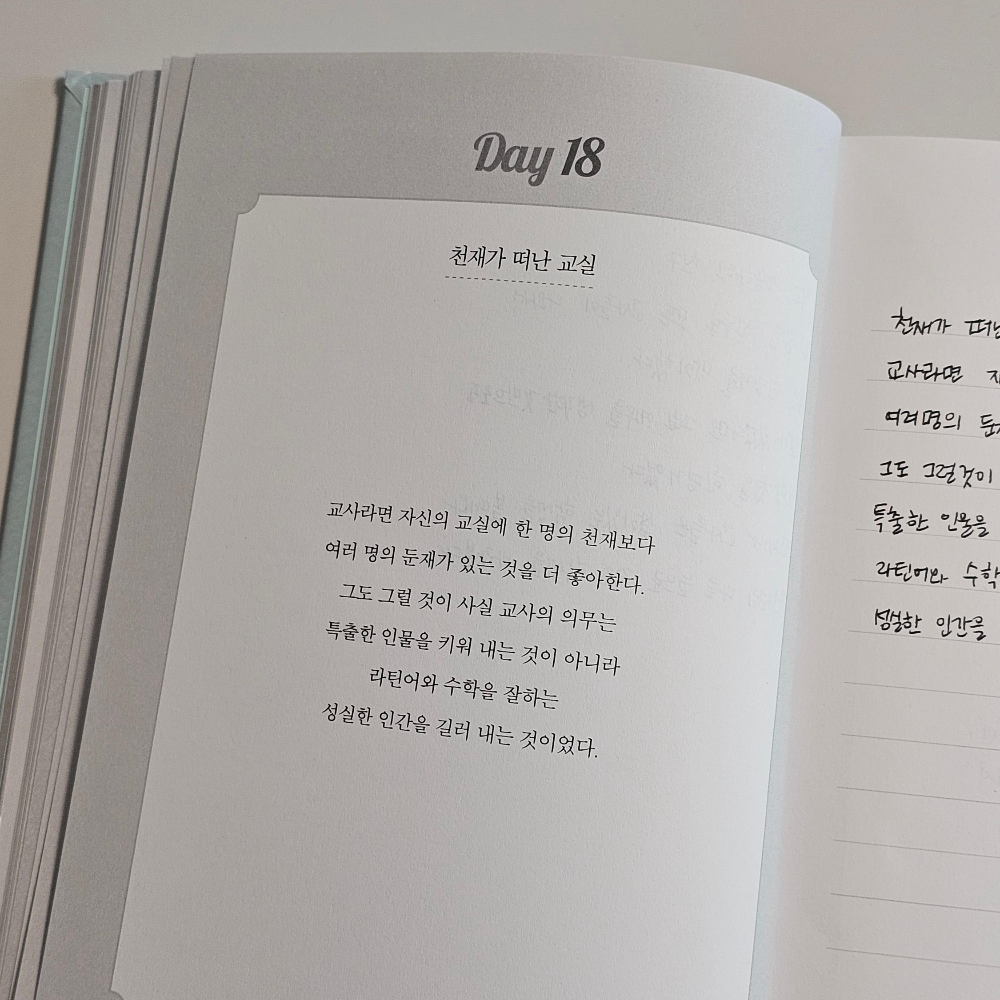 Day 18
천재가 떠난 교실
교사라면 자신의 교실에 한 명의 천재보다
여러 명의 둔재가 있는 것을 더 좋아한다.
그도 그럴 것이 사실 교사의 의무는
특출한 인물을 키워 내는 것이 아니라
라틴어와 수학을 잘하는
성실한 인간을 길러 내는 것이었다.
천재가
교사라면
여러명의
그도 그럴것이
특출한 인물을
라틴어와 수학
성실한 인간을